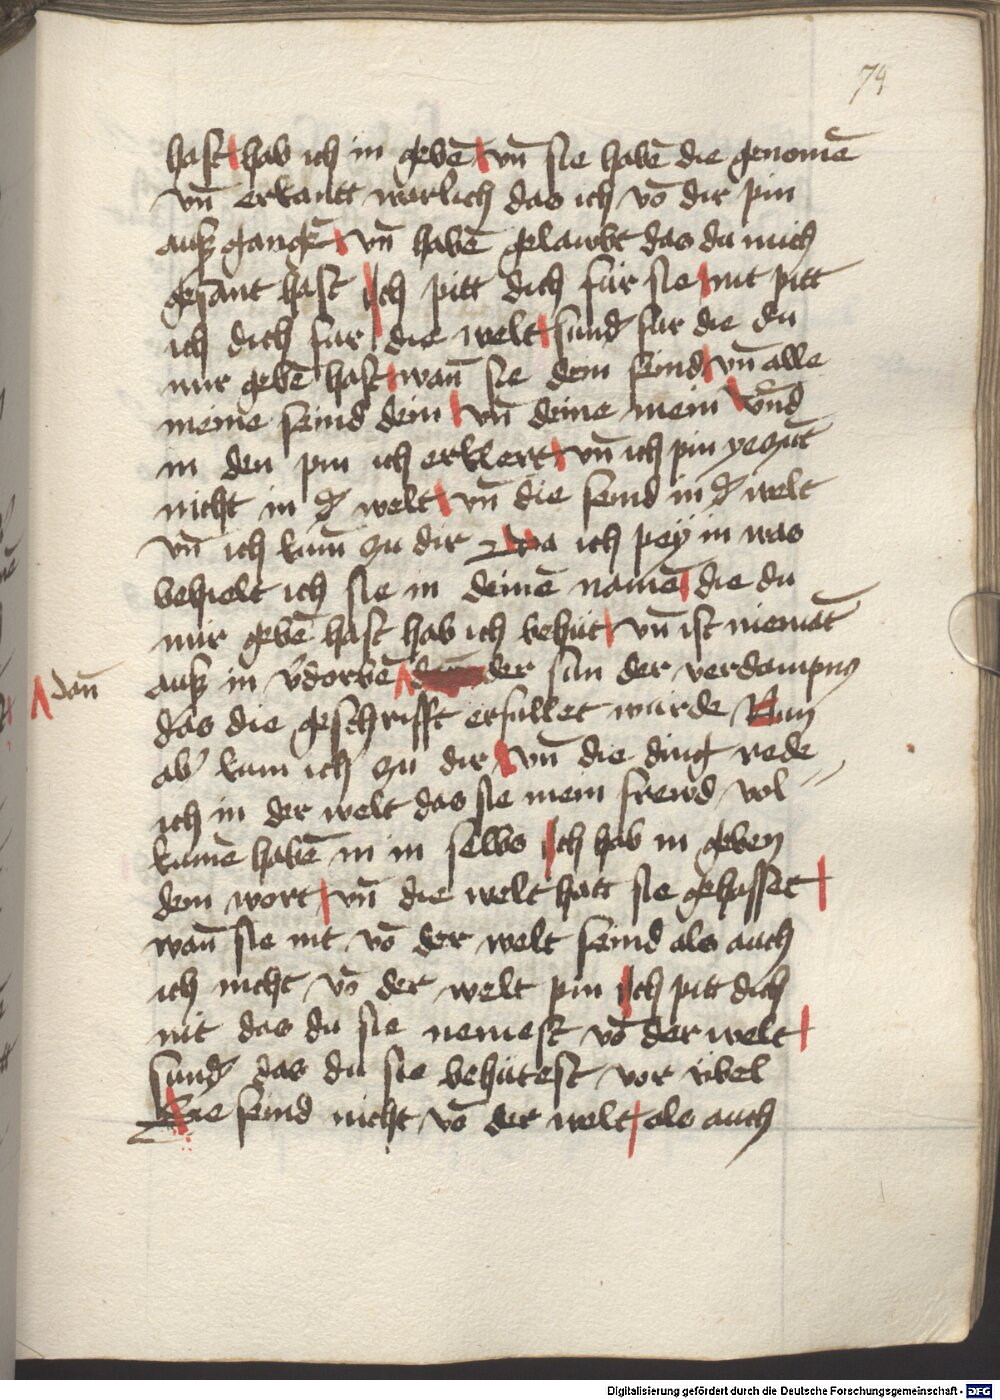 74
hast hab ich in gebē vn̄ sie habē die genomē
vn̄ erkantt warlich das ich vō dir pin
ausz gangē vn̄ habē gelawbt das du mich
gesant hast Ich pitt dich für sie nit pitt
ich dich fur die welt sund̕ fur die du
mir gebē hast wan̄ sie dein seind vn̄ alle
meine seind dein vn̄ deine mein vnd
in den pin ich erklert vn̄ ich pin yeczūt
nicht in d̕ welt vn̄ die seind in d̕ welt
vn̄ ich kum̄ zu dir Da ich pey in was
behielt ich sie in deinē namē die du
mir gebē hast hab ich behüt vn̄ ist niemāt
dan̄
ausz in v̕dorbē der sun der verdampnus
das die geschrifft erfullet wurde Nun
ab̕ kum ich zu dir vn̄ die ding rede
ich in der welt das sie mein frewd vol
kumē habē in in selbs Ich hab in geben
dein wort vn̄ die welt hatt sie gehasset
wan̄ sie nit vō der welt seind als auch
ich nicht vō der welt pin Ich pitt dich
nit das du sie nemest vō der welt
sund̕ das du sie behütest vor vbel
Sie seind nicht vō der welt als auch
Digitalisierung gefördert durch die Deutsche Forschungsgemeinschaft - DFG